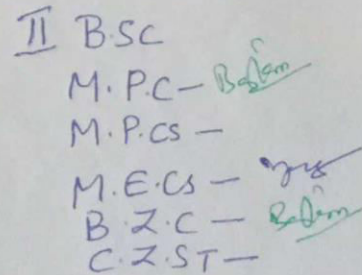 II B.SC
M.P.C —
M.P.CS —
M.E.CS —
B.Z.C —
C.Z.ST —